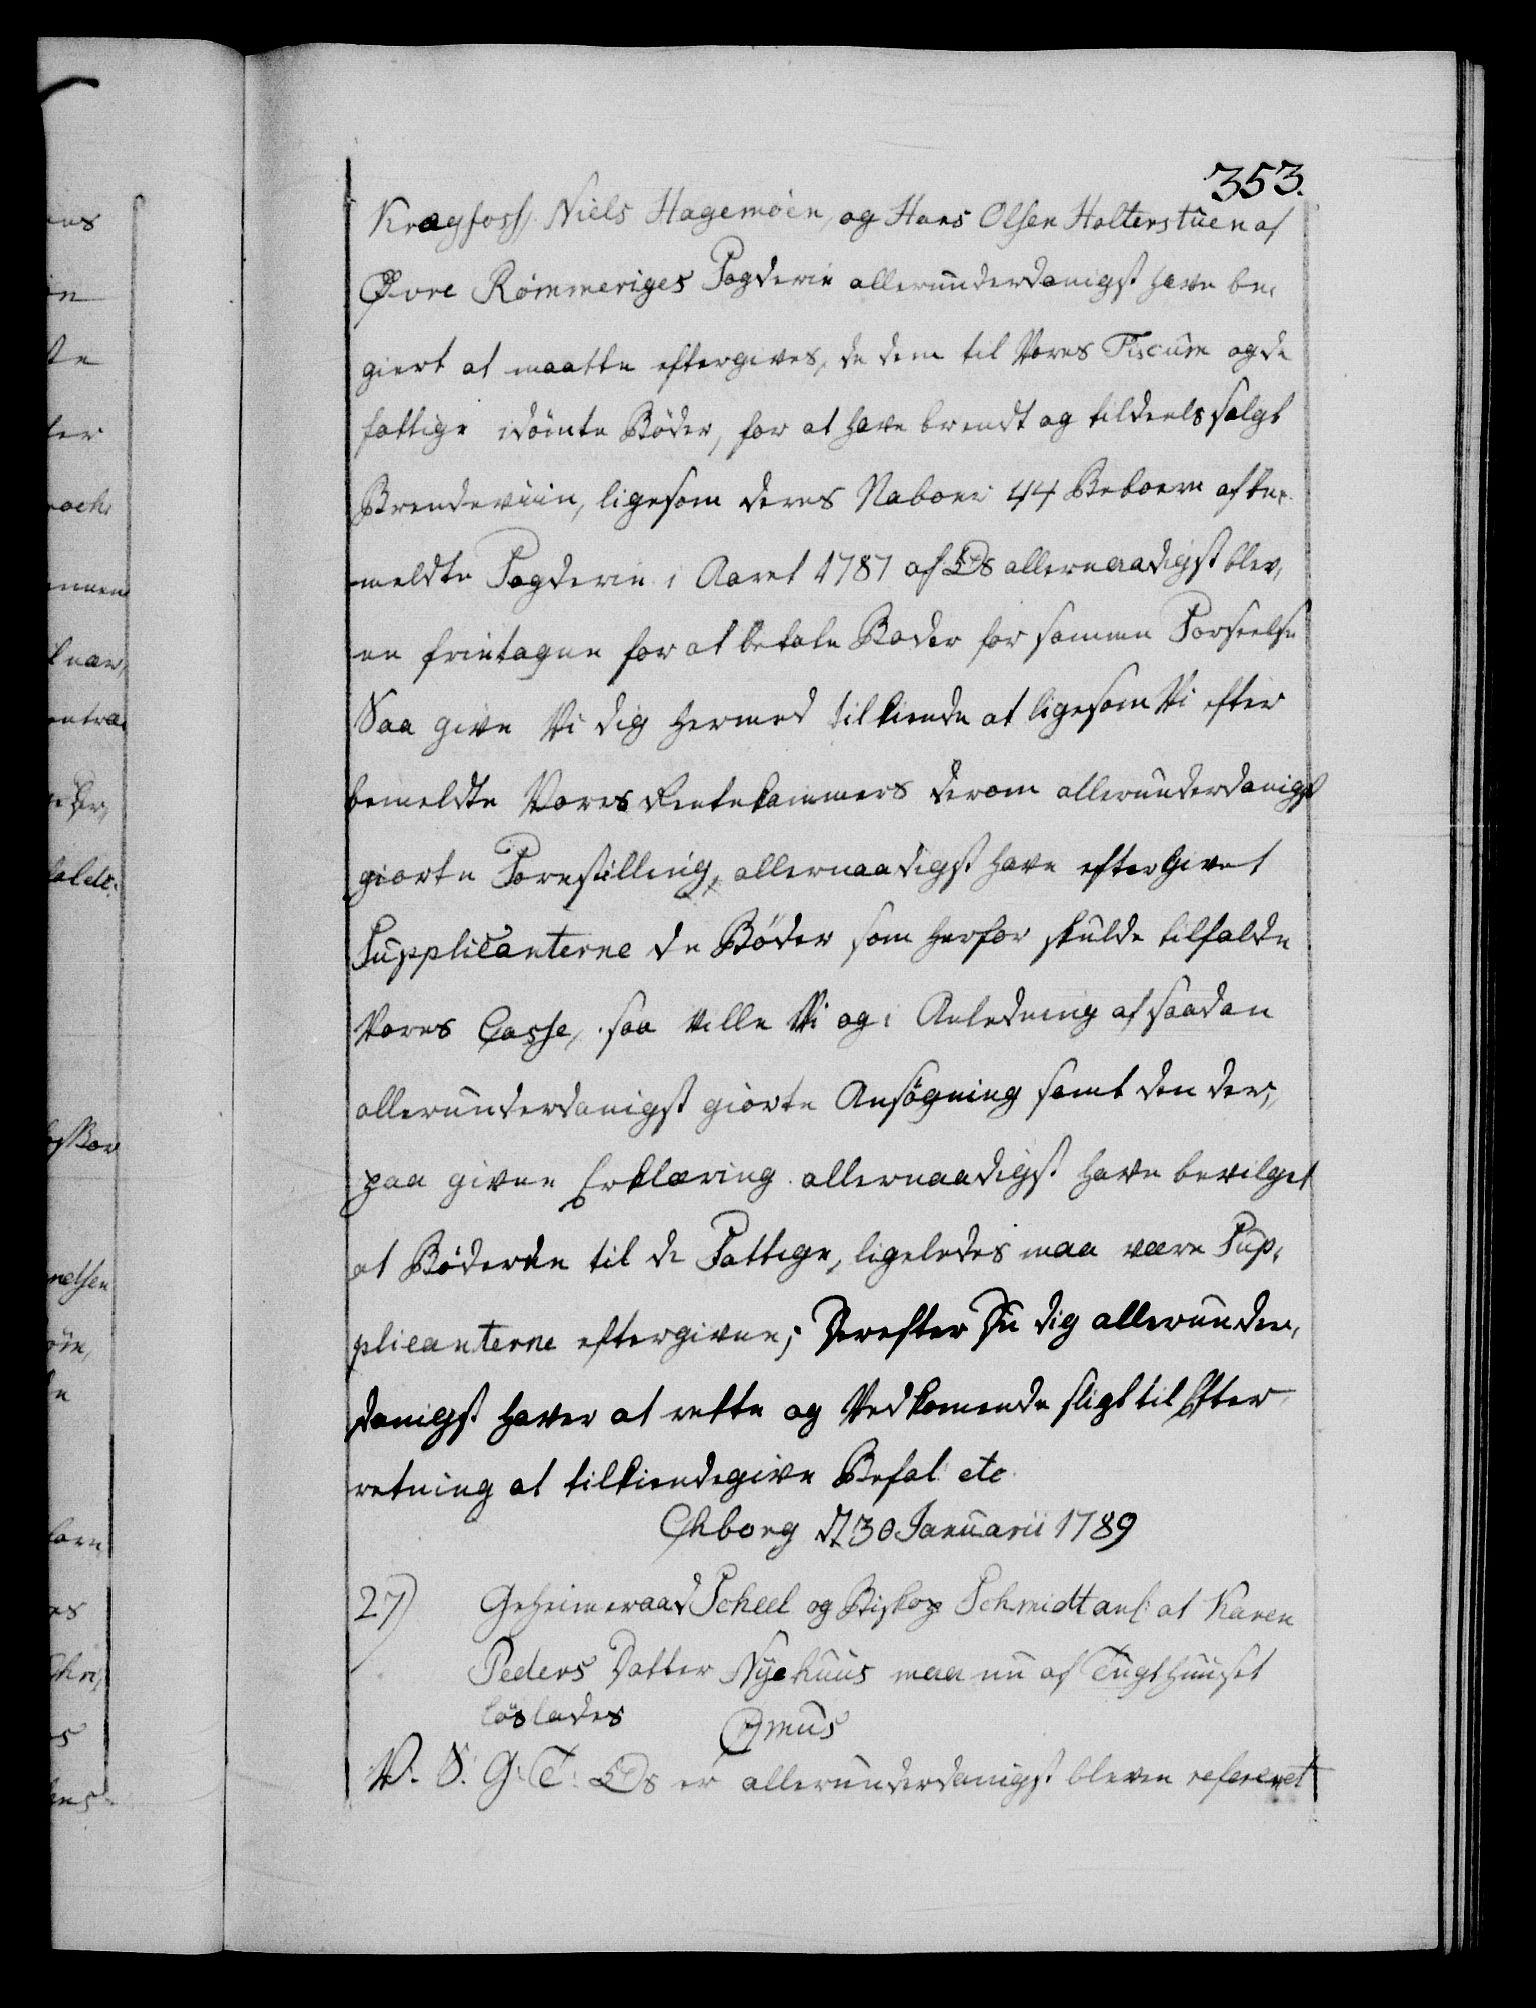 353.
Kragfoss, Niels Hagemöen, og Hans Olsen Holterstuen af
Øvre Rommeriges Fogderie allerunderdanigst have be,
giert at maatte eftergives, de dem til Vores Fiscum og de
fattige idömte Böder, for at have brendt og tildeels solgt
Brendeviin, ligesom deres Naboer 44 Beboere af be,
meldte Fogderie i Aaret 1787 af Os allernaadigst blev,
en fritagne for at betale Böder for samme Forseelse
Saa give Vi dig hermed tilkiende at ligesom Vi efter
bemeldte Vores Rentekammers derom allerunderdanigst
giorte Forestilling, allernaadigst have eftergivet
Supplicanterne de Böder som herfor skulde tilfalde
Vores Casse, saa ville Vi og i Anledning af saadan
allerunderdanigst giorte Ansögning samt den der,
paa givne Erklæring allernaadigst have bevilget
at Böderne til de Fattige, ligeledes maa være Sup,
plicanterne eftergivne; Derefter Du dig allerunder,
danigst haver at rette og Vedkomende sligt til Efter
retning at tilkiendegive Befal: etc
Chborg d 30 Januarii 1789
27) Geheimeraad Scheel og Biskop Schmidt anl: at Karen
Peders Datter Nyehuus maa nu af Tugthuuset
löslades
V. S. G: T: Os er allerunderdanigst bleven refereret